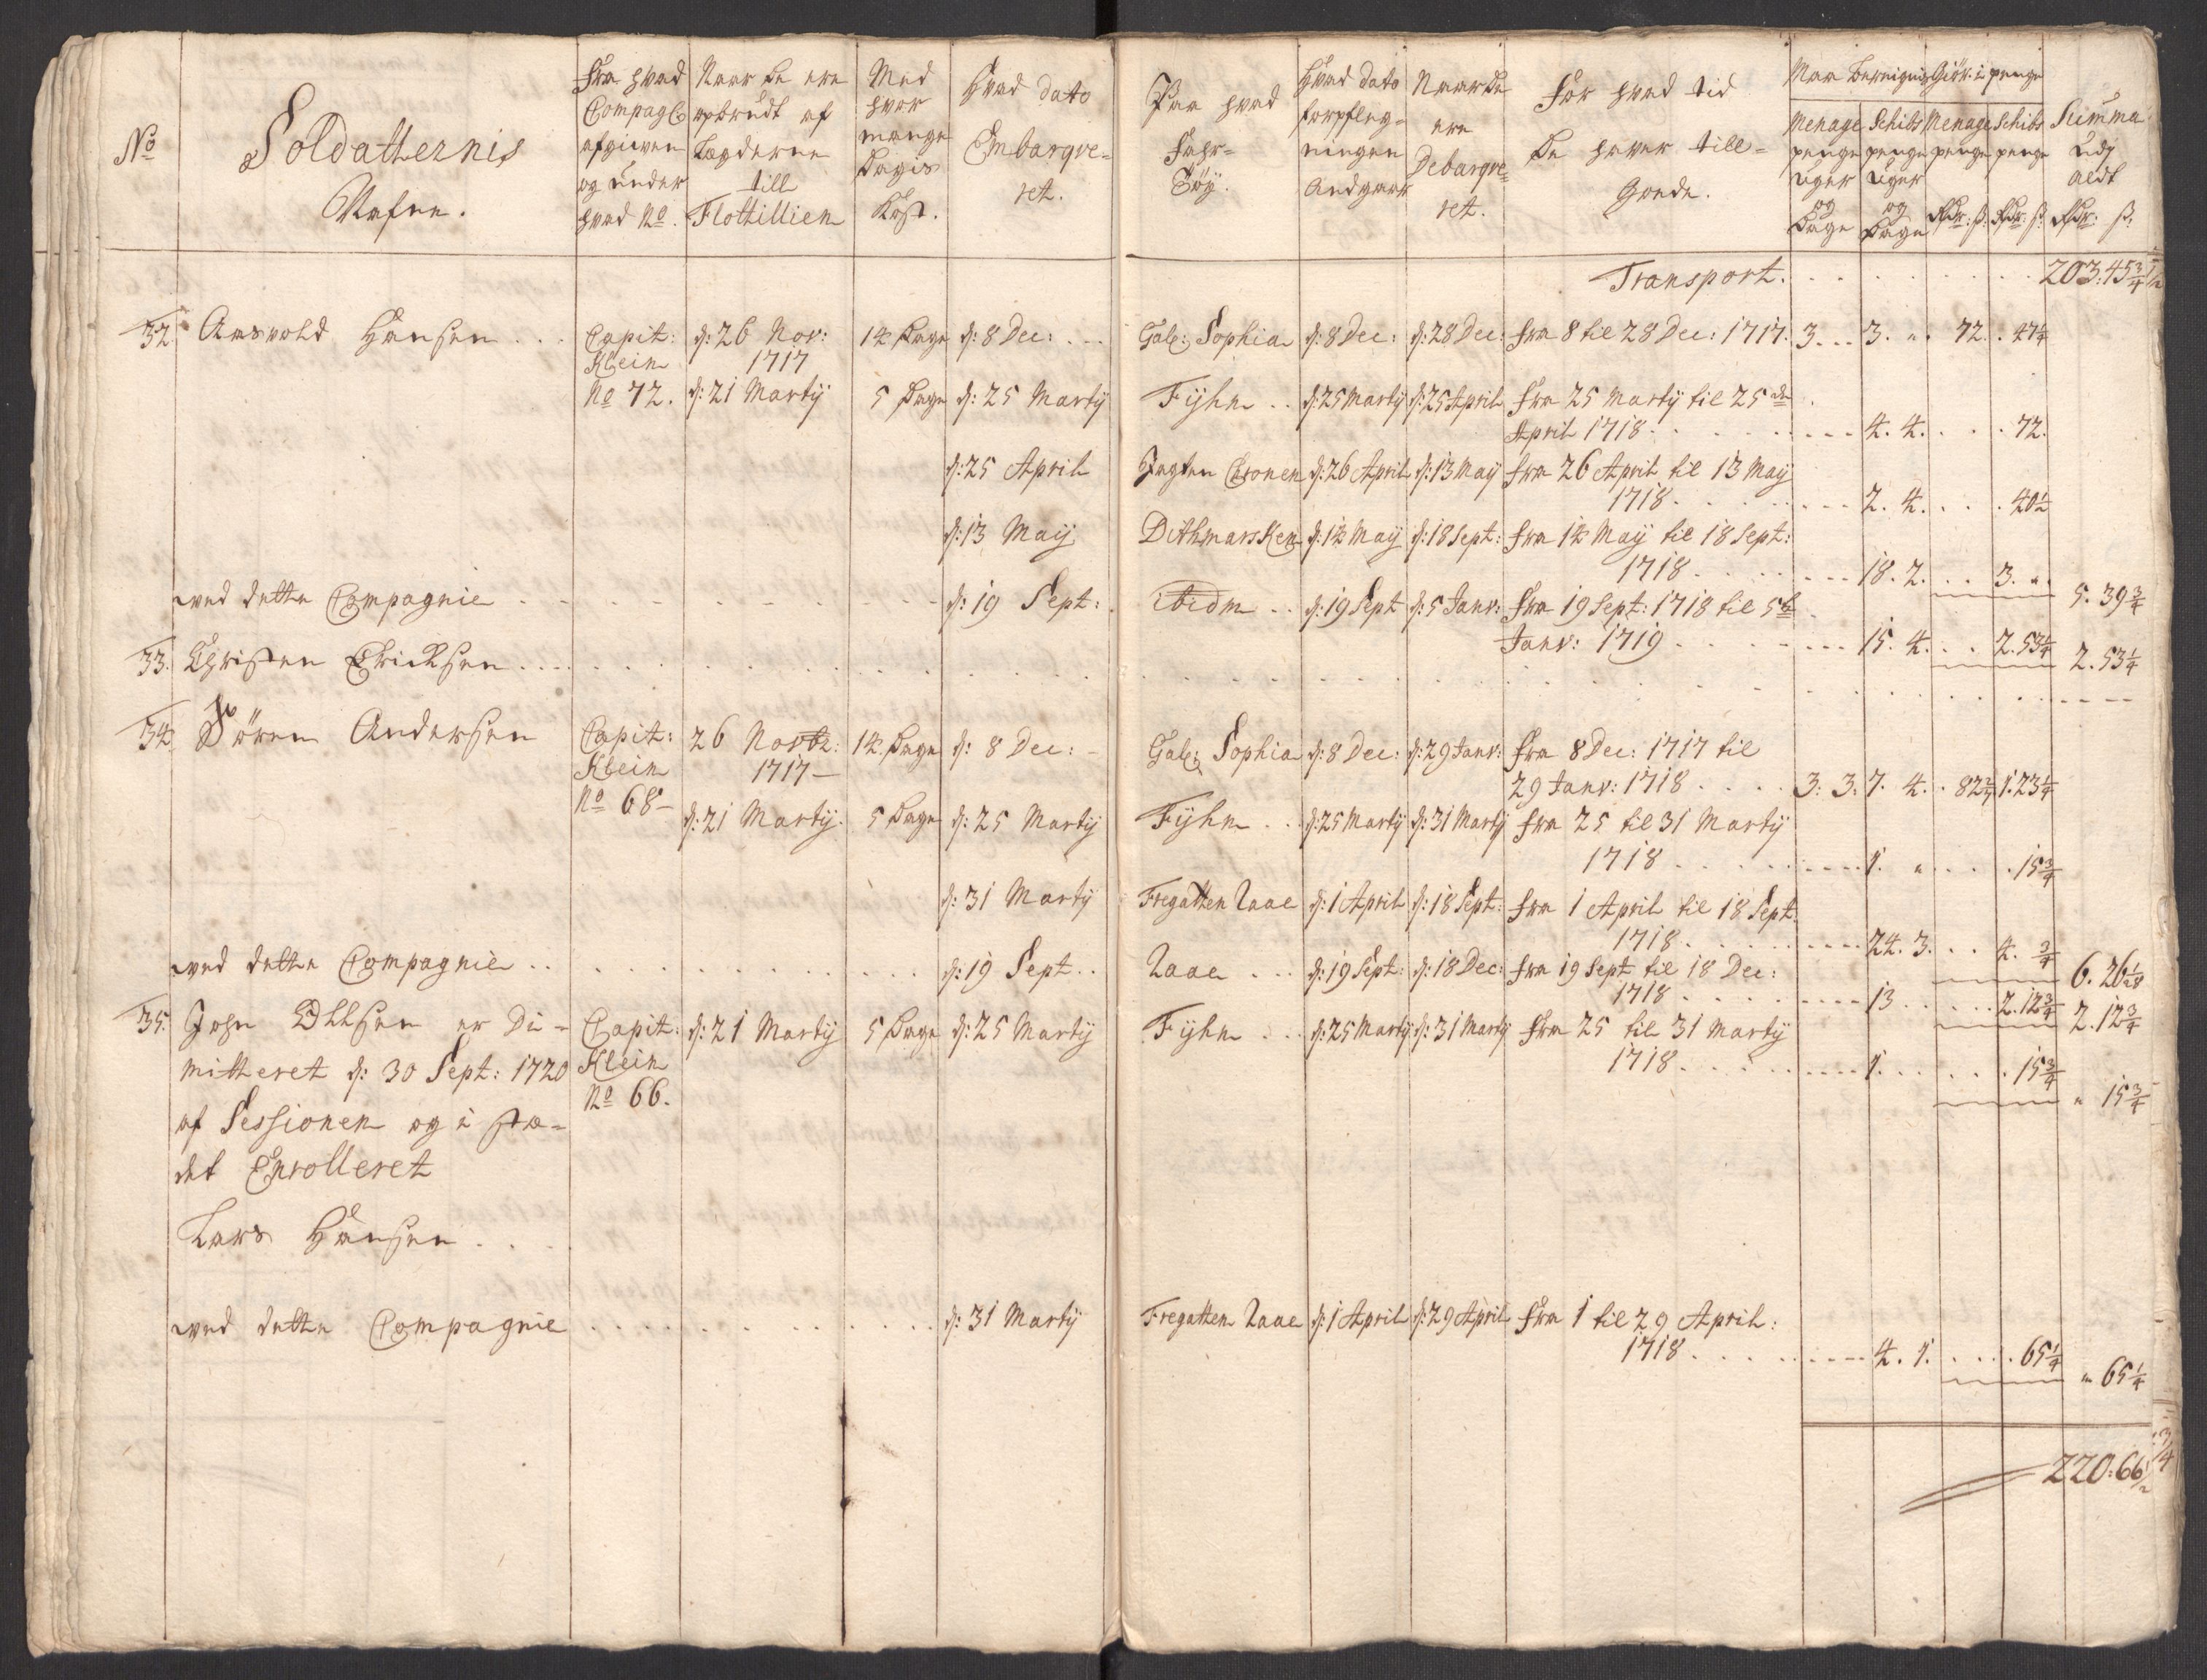 No
Soldatternis
Nafne.
Fra hvad
Compagℓ
afgiven
og under
hvad No.
Naar de ere
opbrudt af
Lægderne
till
Flottillien
Med
hvor
mange
Dagis
Kost.
Hvad dato
Embarqve=
ret.
Paa hvad
Fahr=
Töy.
Hvad dato
forpfleg=
ningen
Andgaar
Naar de
ere
Debarqve=
ret.
For hvad tid
de haver till=
Gode.
Maa bereignis
Giör i penge
Menage
penge
uger
og
Dage
Schibs
penge
uger
og
Dage
Menage
penge
Rdr: ß:
Schibs
penge
Rdr: ß:
Summa
udj
aldt
Rdr: ß:
Transport. 203:45 3/4
32. Aasvold Hansen Capit: d: 26 Nov: 14 Dage d: 8 Dec: Gale: Sophia d: 8 Dec: d: 28 Dec: fra 8 til 28 Dec: 1717. 3. 3. „ 72. 47 1/4
Klein 1717
No 72. d: 21 Martij 5 Dage d: 25 Martij Fyhn d: 25 Martij d: 25 April fra 25 Martij til 25 de
April 1718 4. 4. 72.
d: 25 April Jagten Cronen d: 26 April d: 13 Maij fra 26 April til 13 Maij
1718 2. 4. 40 1/2
d: 13 Maij Dithmarsken d: 14 Maij d: 18 Sept: fra 14 Maij til 18 Sept:
1718 18. 2. 3. „ 5. 39 3/4
ved dette Compagnie d: 19 Sept: ibidm d: 19 Sept d: 5 Janv: fra 19 Sept: 1718 til 5 t
Janv: 1719 15. 4. 2. 53 1/4 2. 53 1/4
33. Christen Ericksen
34. Sören Andersen Capit: 26 Novbr: 14 Dage d: 8 Dec: Gale: Sophia d: 8 Dec: d: 29 Janv: fra 8 Dec: 1717 til
Klein 1717
29 Janv: 1718 3: 3: 7. 4. 82 2/7 1. 23 1/4
No 68 d: 21 Martij. 5 Dage d: 25 Martij Fyhn d: 25 Martij d: 31 Martij fra 25 til 31 Martij
1718 1. „ 15 3/4
d: 31 Martij Fregatten Raae d: 1 April d: 18 Sept: fra 1 April til 18 Sept:
1718 24. 3. 4. 3/4 6. 26
ved dette Compagnie d: 19 Sept Raae d: 19 Sept: d: 18 Dec: fra 19 Sept til 18 Dec:
1718 13 2. 12 3/4 2. 12 3/4
35. John Ollsen er Di= Capit: d: 21 Martij 5 Dage d: 25 Martij Fyhn d: 25 Martij d: 31 Martij fra 25 til 31 Martij
mitteret d: 30 Sept: 1720 Klein 1718 1. 15 3/4 „ 15 3/4
af Sessionen og i stæ= No 66.
det Enrolleret
Lars Hansen
ved dette Compagnie d: 31 Martij Fregatten Raae d: 1 April d: 29 April fra 1 til 29 April:
1718 4. 1. 65 1/4 „ 65 1/4
220:66 1/2